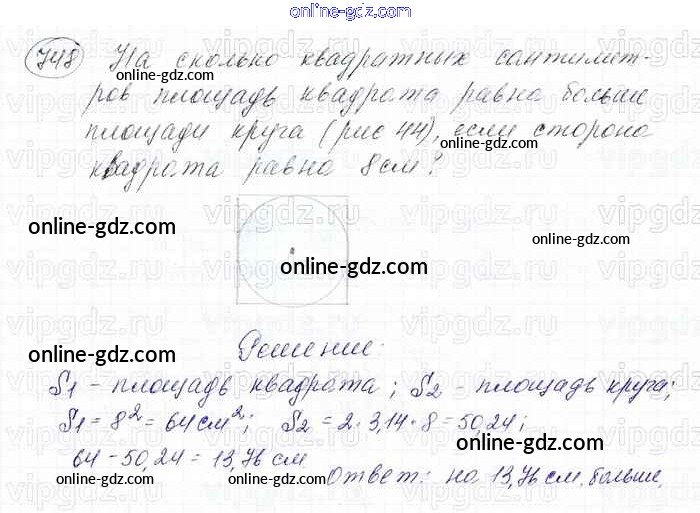 online-gdz.com
748 На сколько квадратных сантимет-
ров площадь квадрата равна больше
площади круга (рис 44), если сторона
квадрата равна 8 см?
online-gdz.com
online-gdz.com
online-gdz.com
online-gdz.com
online-gdz.com
online-gdz.com
Решение:
online-gdz.com
online-gdz.com
S1 - площадь квадрата; S2 - площадь круга;
S1 = 8² = 64 см²; S2 = 2 · 3,14 · 8 = 50,24;
online-gdz.com
64 - 50,24 = 13,76 см
Ответ: на 13,76 см. больше.
online-gdz.com
online-gdz.com
vipgdz.ru